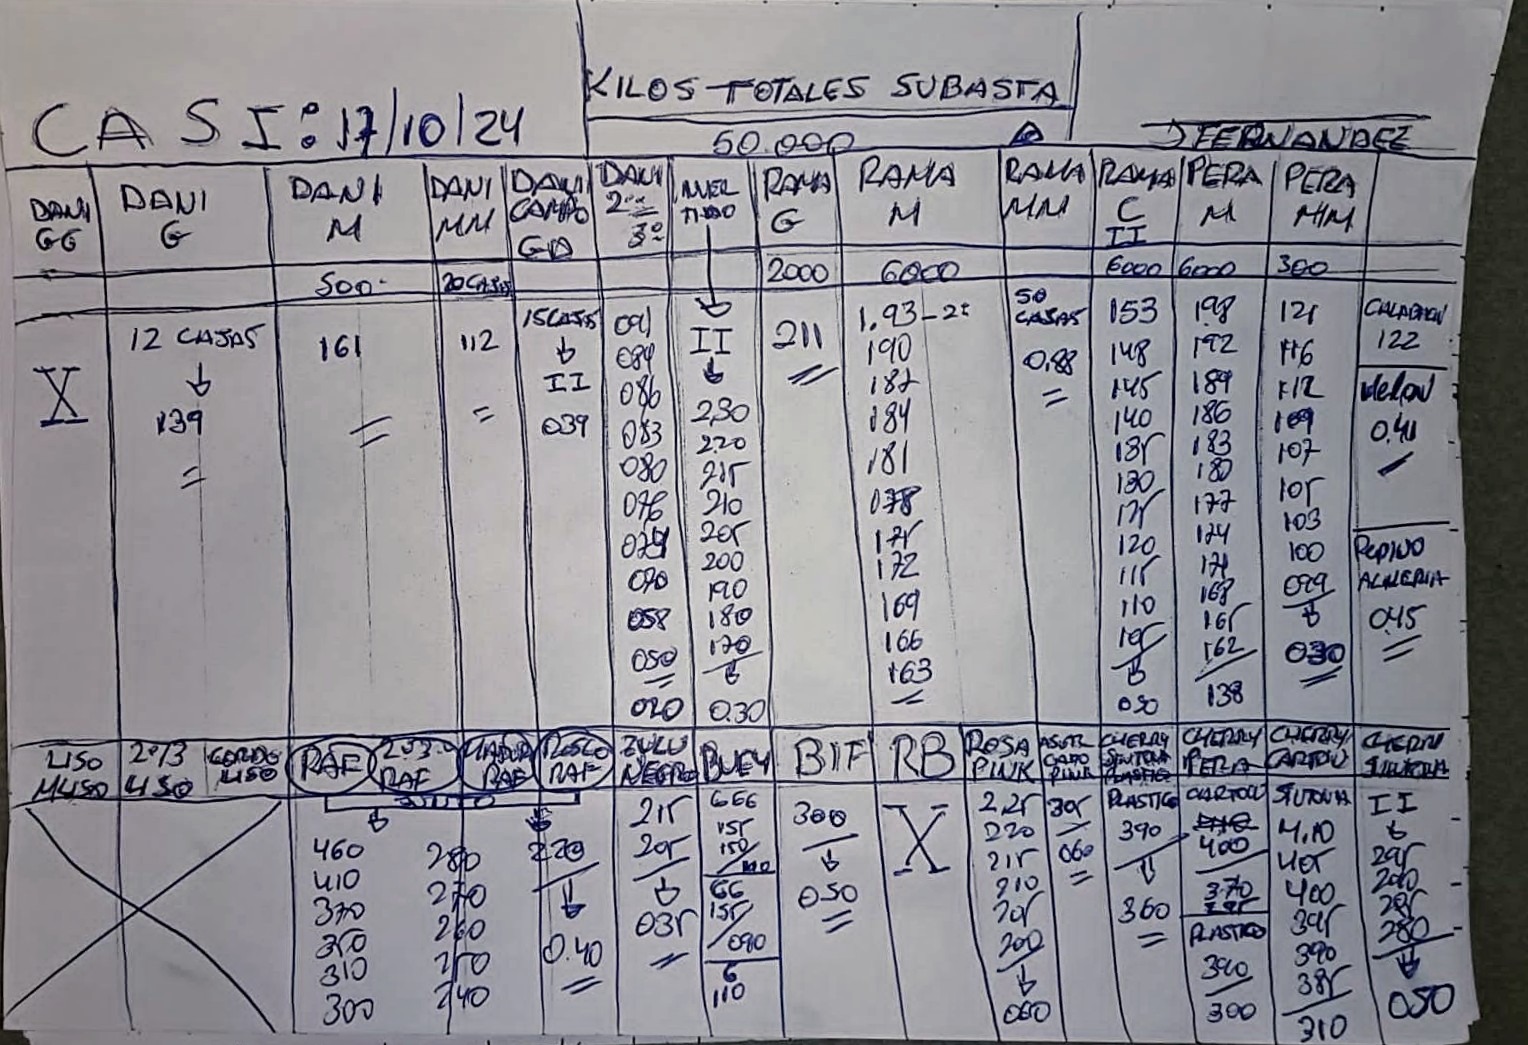 KILOS TOTALES SUBASTA
CASI: 17/10/24
50.000
J FERNANDEZ
DANI GG
DANI G
DANI M
DANI MM
DANI CAMPO GD
DANI 2ª 3ª
INVERTIDO
RAMA G
RAMA M
RAMA MM
RAMA C II
PERA M
PERA MM
500
20 CAJAS
2000
6000
6000
6000
300
X
12 CAJAS
139
161
112
15 CAJAS
II
039
091
089
086
083
080
076
074
070
058
050
020
II
230
220
215
210
205
200
190
180
170
0.30
211
1.93-2ª
190
187
184
181
178
175
172
169
166
163
50 CAJAS
0,88
153
148
145
140
135
130
125
120
115
110
105
050
198
192
189
186
183
180
177
174
171
168
165
162
138
121
116
112
109
107
105
103
100
099
030
CALABACIN
122
MELON
0.41
PEPINO
ALMERIA
045
LISO
M LISO
2ª/3
LISO
GORDO
LISO
RAF
2ª3ª
RAF
RAF
ROSCO
RAF
ZULU
NEGRO
BUEY
BIF
RB
ROSA
PINK
PINK
CHERRY
SINTONIA
PLASTICO
CHERRY
PERA
CHERRY
CARTON
CHERRY
SINTONIA
460
410
370
350
310
300
280
270
260
250
240
220
0.40
215
205
035
666
155
150
66
155
090
6
110
300
050
X
2,25
220
215
210
205
200
060
305
060
PLASTICO
390
360
CARTON
400
370
PLASTICO
390
300
SINTONIA
4.10
405
400
395
390
385
310
II
295
290
285
280
050